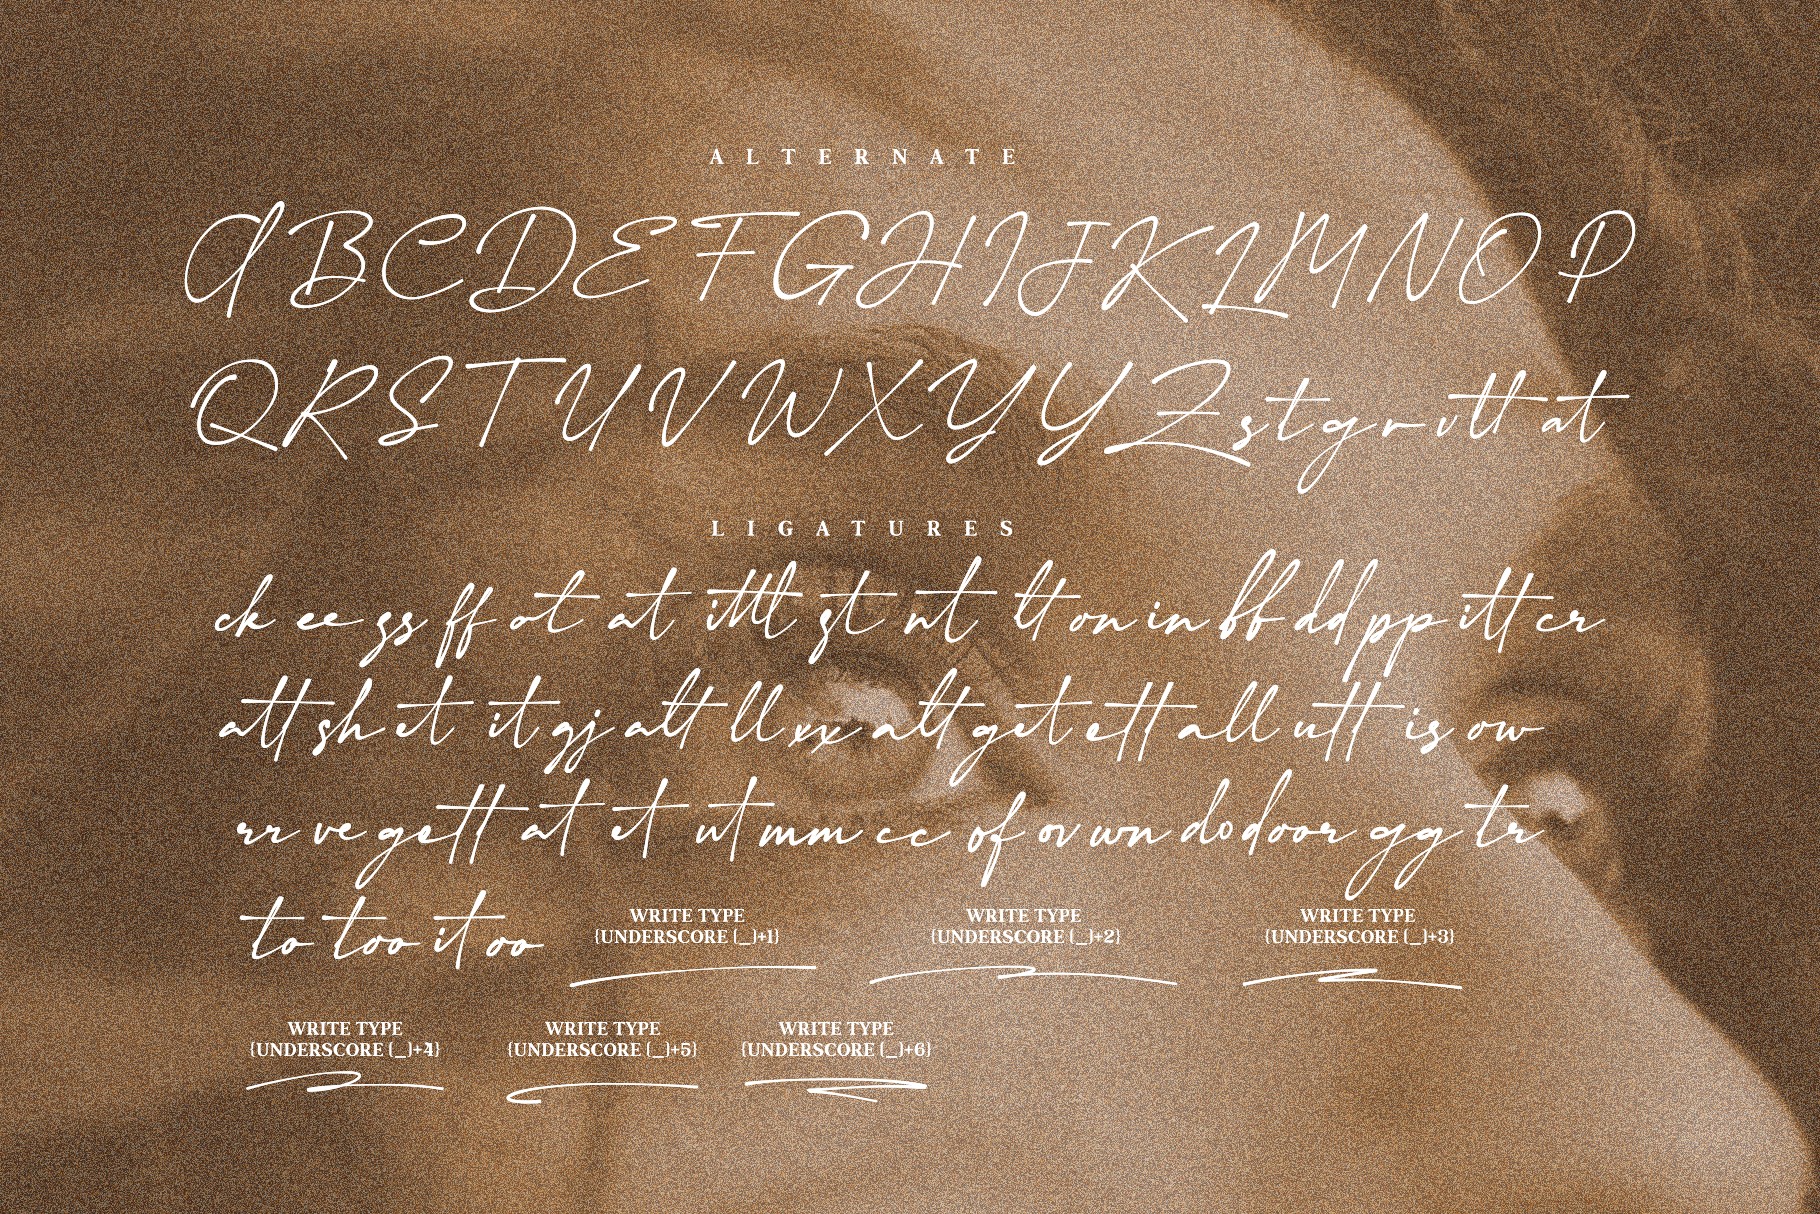 ALTERNATE
A B C D E F G H I J K L M N O P
Q R S T U V W X Y Y Z s t g r v tt at
LIGATURES
ck ee gs ff ot at itt gt nt lt on in bb dd pp itt cr
att sh et it gj alt ll xx alt get ett all utt is ow
rr ve gett at et ut mm cc of ov wn do door gg tr
to too it oo
WRITE TYPE
{UNDERSCORE (_)+1}
WRITE TYPE
{UNDERSCORE (_)+2}
WRITE TYPE
{UNDERSCORE (_)+3}
WRITE TYPE
{UNDERSCORE (_)+4}
WRITE TYPE
{UNDERSCORE (_)+5}
WRITE TYPE
{UNDERSCORE (_)+6}